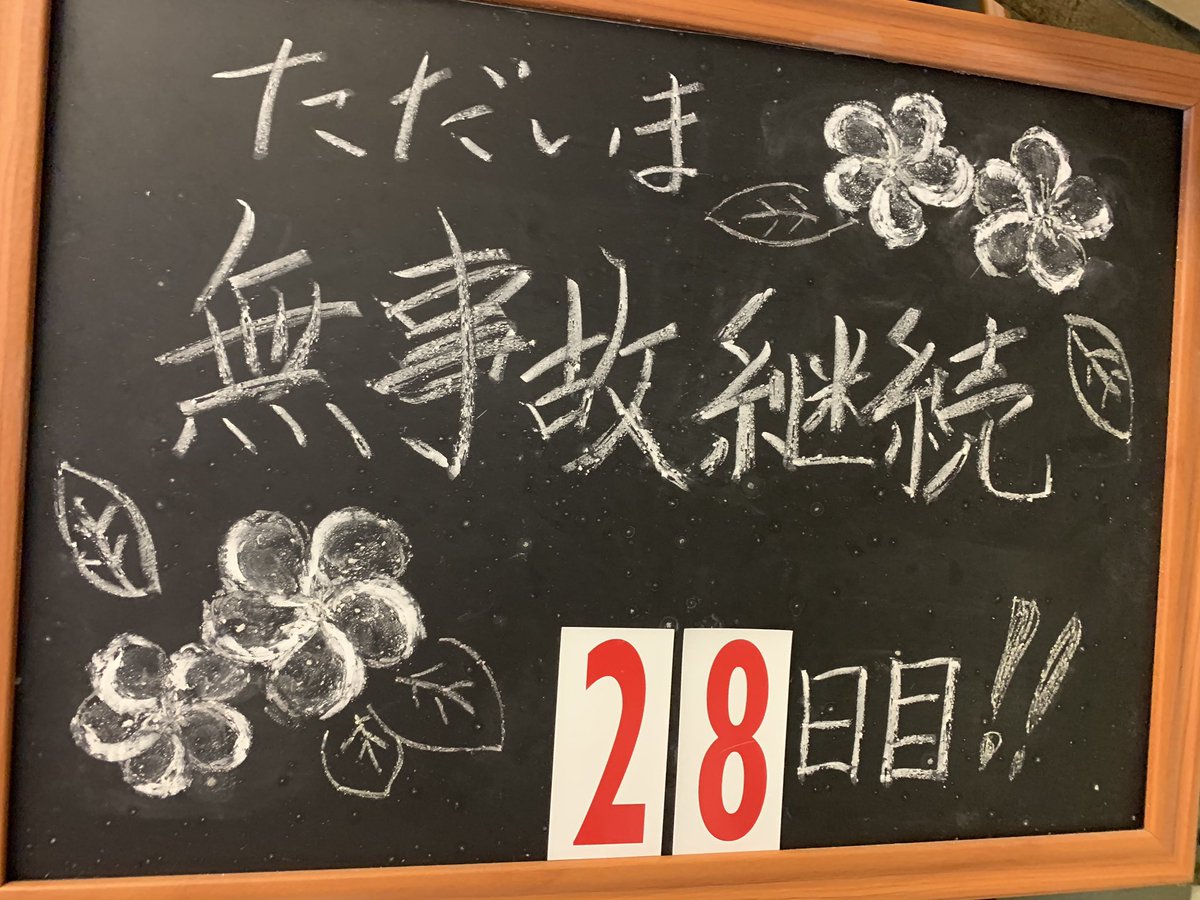 ただいま
無事故継続
28日目!!